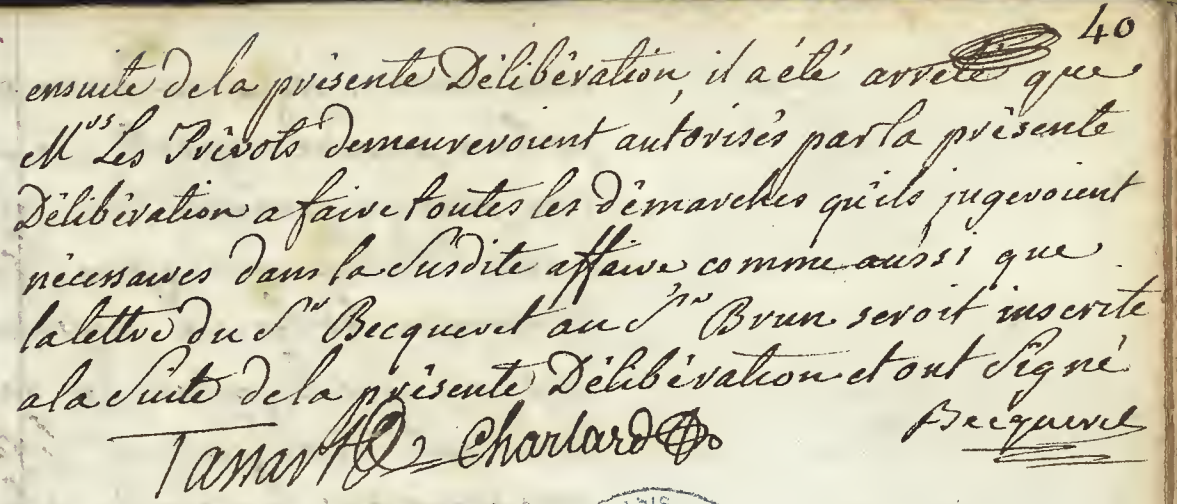 40
ensuite de la présente Délibération, il a été arreté que
Mrs Les Prévots demeureroient autorisés par la présente
Délibération a faire toutes les démarches qu'ils jugeroient
nécessaires dans la Susdite affaire comme aussi que
la lettre du Sr Becqueret au Sr Brun seroit inscrite
a la Suite de la présente Délibération et ont Signé
Becquerel
Tassart Charlard